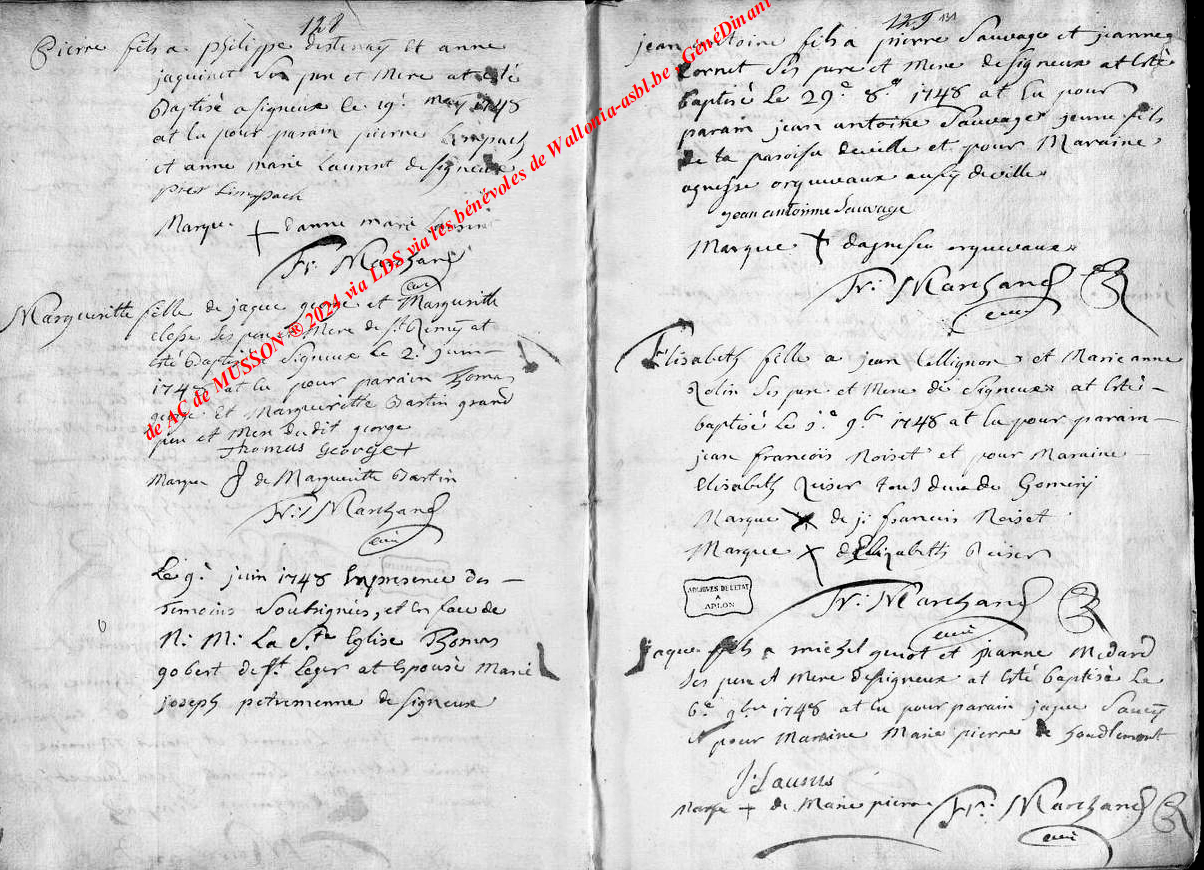 128
Pierre fils a philippe et anne
jaquinet Ses pere et Mere at esté
Baptisé a signeux le 19e may 1748
at eu pour parain pierre Limpach
et anne marie Laurent de signeux
pier Limpach
Marque + danne marie
Fr: Marchand
curé
Marguerithe fille de jaque george et Marguerith
Ses pere et Mere de St Remy at
esté Baptisée a Signeux Le 2e juin
1748 at eu pour parain Thomas
george Et Marguerithe Bartin grand
pere et Mere dudit george
Thomas George +
Marque de Marguerith Bartin
Fr: Marchand
curé
Le 9e juin 1748 En presence des
temoins Soubsignés, et En face de
N: M: La Ste Eglise Thomas
gobert de St Leger at Epousé Marie
joseph petremenne de signeux
129 131
jean antoine fils a pierre Sauvage et jeanne
Cornet Ses pere et Mere de signeux at Esté
baptisé Le 29e 8e 1748 at Eu pour
parain jean antoine Sauvage jeune fils
de la paroise deville et pour Maraine
agnesse orquevaux ausy deville
jean antoinne Sauvage
Marque + dagnese orquevaux
Fr: Marchand
curé
Elisabeth fille a jean Collignon et Marie anne
Rolin Ses pere et Mere de Signeux at Esté
baptisé Le 1e 9bre 1748 at Eu pour parain
jean francois Noiset et pour Maraine
Elisabeth Reiser tous deux de Gomery
Marque X de j: francois Noiset
Marque X d'Elizabeth Reiser
ARCHIVES DE L'ETAT
A
ARLON
Fr: Marchand
curé
Jaque fils a michel guiot et jeanne Medard
Ses pere et Mere de Signeux at Esté baptisé Le
6e 9bre 1748 at Eu pour parain jaque Saucy
et pour Maraine Marie pierre de houdlemont
Marque + de Marie pierre
Fr: Marchand
curé
de AC de MUSSON ® 2024 via LDS via les bénévoles de Wallonia-asbl.be - GénéDinant